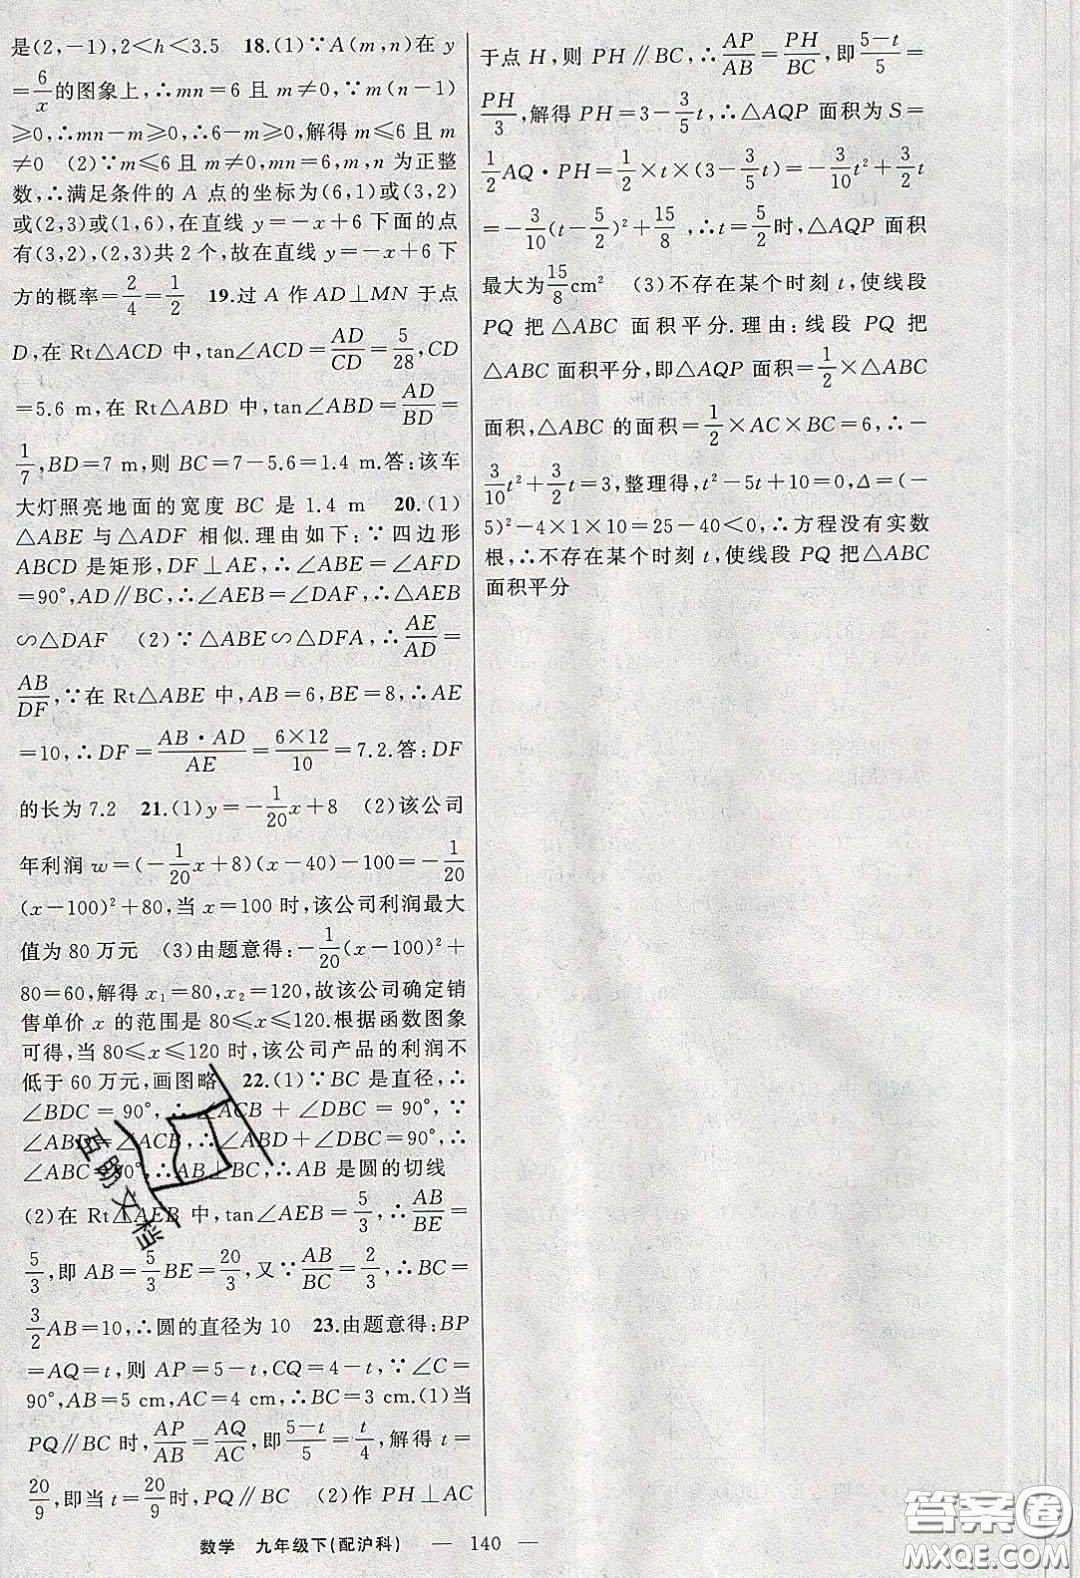 是(2,-1),2<h<3.5 18.(1)∵A(m,n)在 y
=6/x的图象上,∴mn=6 且 m≠0,∵m(n-1)
≥0,∴mn-m≥0,∴6-m≥0,解得 m≤6 且 m
≠0 (2)∵m≤6 且 m≠0,mn=6,m,n 为正整
数,∴满足条件的 A 点的坐标为(6,1)或(3,2)
或(2,3)或(1,6),在直线 y=-x+6 下面的点
有(3,2),(2,3)共 2 个,故在直线 y=-x+6 下
方的概率=2/4=1/2 19.过 A 作 AD⊥MN 于点
D,在 Rt△ACD 中,tan∠ACD=AD/CD=5/28,CD
=5.6 m,在 Rt△ABD 中,tan∠ABD=AD/BD=
1/7,BD=7 m,则 BC=7-5.6=1.4 m.答:该车
大灯照亮地面的宽度 BC 是 1.4 m 20.(1)
△ABE 与△ADF 相似.理由如下:∵四边形
ABCD 是矩形,DF⊥AE,∴∠ABE=∠AFD
=90°,AD∥BC,∴∠AEB=∠DAF,∴△AEB
∽△DAF (2)∵△ABE∽△DFA,∴AE/AD=
AB/DF,∵在 Rt△ABE 中,AB=6,BE=8,∴AE
=10,∴DF=AB·AD/AE=6×12/10=7.2.答:DF
的长为 7.2 21.(1)y=-1/20x+8 (2)该公司
年利润 w=(-1/20x+8)(x-40)-100=-1/20
(x-100)²+80,当 x=100 时,该公司利润最大
值为 80 万元 (3)由题意得:-1/20(x-100)²+
80=60,解得 x₁=80,x₂=120,故该公司确定销
售单价 x 的范围是 80≤x≤120.根据函数图象
可得,当 80≤x≤120 时,该公司产品的利润不
低于 60 万元,画图略 22.(1)∵BC 是直径,∴
∠BDC=90°,∴∠ACB+∠DBC=90°,∵
∠ABD=∠ACB,∴∠ABD+∠DBC=90°,∴
∠ABC=90°,∴AB⊥BC,∴AB 是圆的切线
(2)在 Rt△AEB 中,tan∠AEB=5/3,∴AB/BE=
5/3,即 AB=5/3BE=20/3,又∵AB/BC=2/3,∴BC=
3/2AB=10,∴圆的直径为 10 23.由题意得:BP
=AQ=t,则 AP=5-t,CQ=4-t,∵∠C=
90°,AB=5 cm,AC=4 cm,∴BC=3 cm.(1)当
PQ∥BC 时,AP/AB=AQ/AC,即5-t/5=t/4,解得 t=
20/9,即当 t=20/9时,PQ∥BC (2)作 PH⊥AC
于点 H,则 PH∥BC,∴AP/AB=PH/BC,即5-t/5=
PH/3,解得 PH=3-3/5t,∴△AQP 面积为 S=
1/2AQ·PH=1/2×t×(3-3/5t)=-3/10t²+3/2t
=-3/10(t-5/2)²+15/8,∴t=5/2时,△AQP 面积
最大为15/8cm² (3)不存在某个时刻 t,使线段
PQ 把△ABC 面积平分.理由:线段 PQ 把
△ABC 面积平分,即△AQP 面积=1/2×△ABC
面积,△ABC 的面积=1/2×AC×BC=6,∴-
3/10t²+3/2t=3,整理得,t²-5t+10=0,Δ=(-
5)²-4×1×10=25-40<0,∴方程没有实数
根,∴不存在某个时刻 t,使线段 PQ 把△ABC
面积平分
互助文档
数学 九年级下(配沪科) — 140 —
答案圈
MXQE.COM